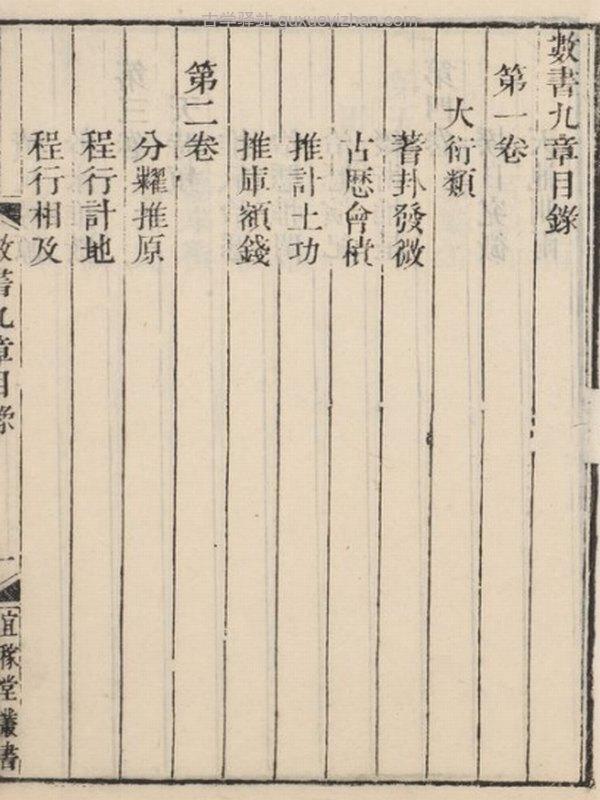 古学驿站 guxueyizhan.com
數書九章目錄
第一卷
大衍類
蓍卦發微
古厯會積
推計土功
推庫額錢
第二卷
分糶推原
程行計地
程行相及
數書九章目錄
一
宜稼堂叢書